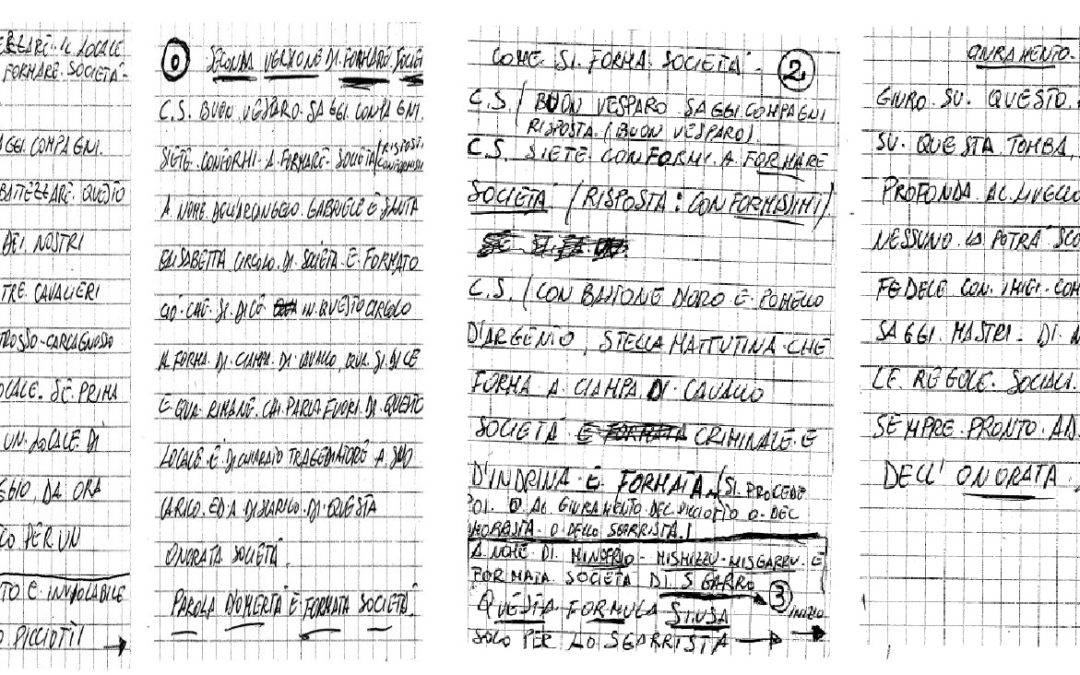 LOCALE
FORMARE SOCIETÀ -
SAGGI COMPAGNI.
BATTEZZARE QUESTO
DEI NOSTRI
TRE CAVALIERI
OSSO - CARCAGNOSSO
LOCALE. SE PRIMA
UN LOCALE DI
DA ORA
PER UN
E INVIOLABILE
PICCIOTTI
0 SECONDA VERSIONE DI FORMARE SOCIE
C.S. BUON VESPARO. SAGGI COMPAGNI.
SIETE CONFORMI A FORMARE SOCIETÀ (RISPOSTA
A NOME DELL'ARCANGELO GABRIELE E SANTA
ELISABETTA CIRCOLO DI SOCIETÀ E FORMATO
CIÒ CHE SI DICE IN QUESTO CIRCOLO
A FORMA DI CIAMPA DI CAVALLO, QUA SI DICE
E QUA RIMANE CHI PARLA FUORI DA QUESTO
LOCALE È DICHIARATO TRAGEDIATORE A SUO
CARICO ED A DISCARICO DI QUESTA
ONORATA SOCIETÀ.
PAROLA D'OMERTÀ È FORMATA SOCIETÀ.
COME SI FORMA SOCIETÀ - 2
C.S / BUON VESPARO SAGGI COMPAGNI
RISPOSTA (BUON VESPARO).
C.S. SIETE CONFORMI A FORMARE
SOCIETÀ (RISPOSTA: CONFORMISSIMI).
C.S. / CON BASTONE D'ORO E POMELLO
D'ARGENTO, STELLA MATTUTINA CHE
FORMA A CIAMPA DI CAVALLO
SOCIETÀ È FORMATA CRIMINALE E
D'INDRINA È FORMATA / SI PROCEDE
POI O AL GIURAMENTO DEL PICCIOTTO O DEL
MORRISTA O DELLO SGARRISTA /
A NOME DI MINOFRIO - MISMIZZU - MISGARRU È
FORMATA SOCIETÀ DI SGARRO 3
QUESTA FORMULA SI USA INIZIO
SOLO PER LO SGARRISTA
GIURAMENTO.
GIURO SU QUESTO
SU QUESTA TOMBA,
PROFONDA AL LIVELLO
NESSUNO LA POTRÀ SCO
FEDELE CON I MIEI COM
SAGGI MASTRI - DI
LE REGOLE SOCIALI.
SEMPRE PRONTO AD
DELL'ONORATA